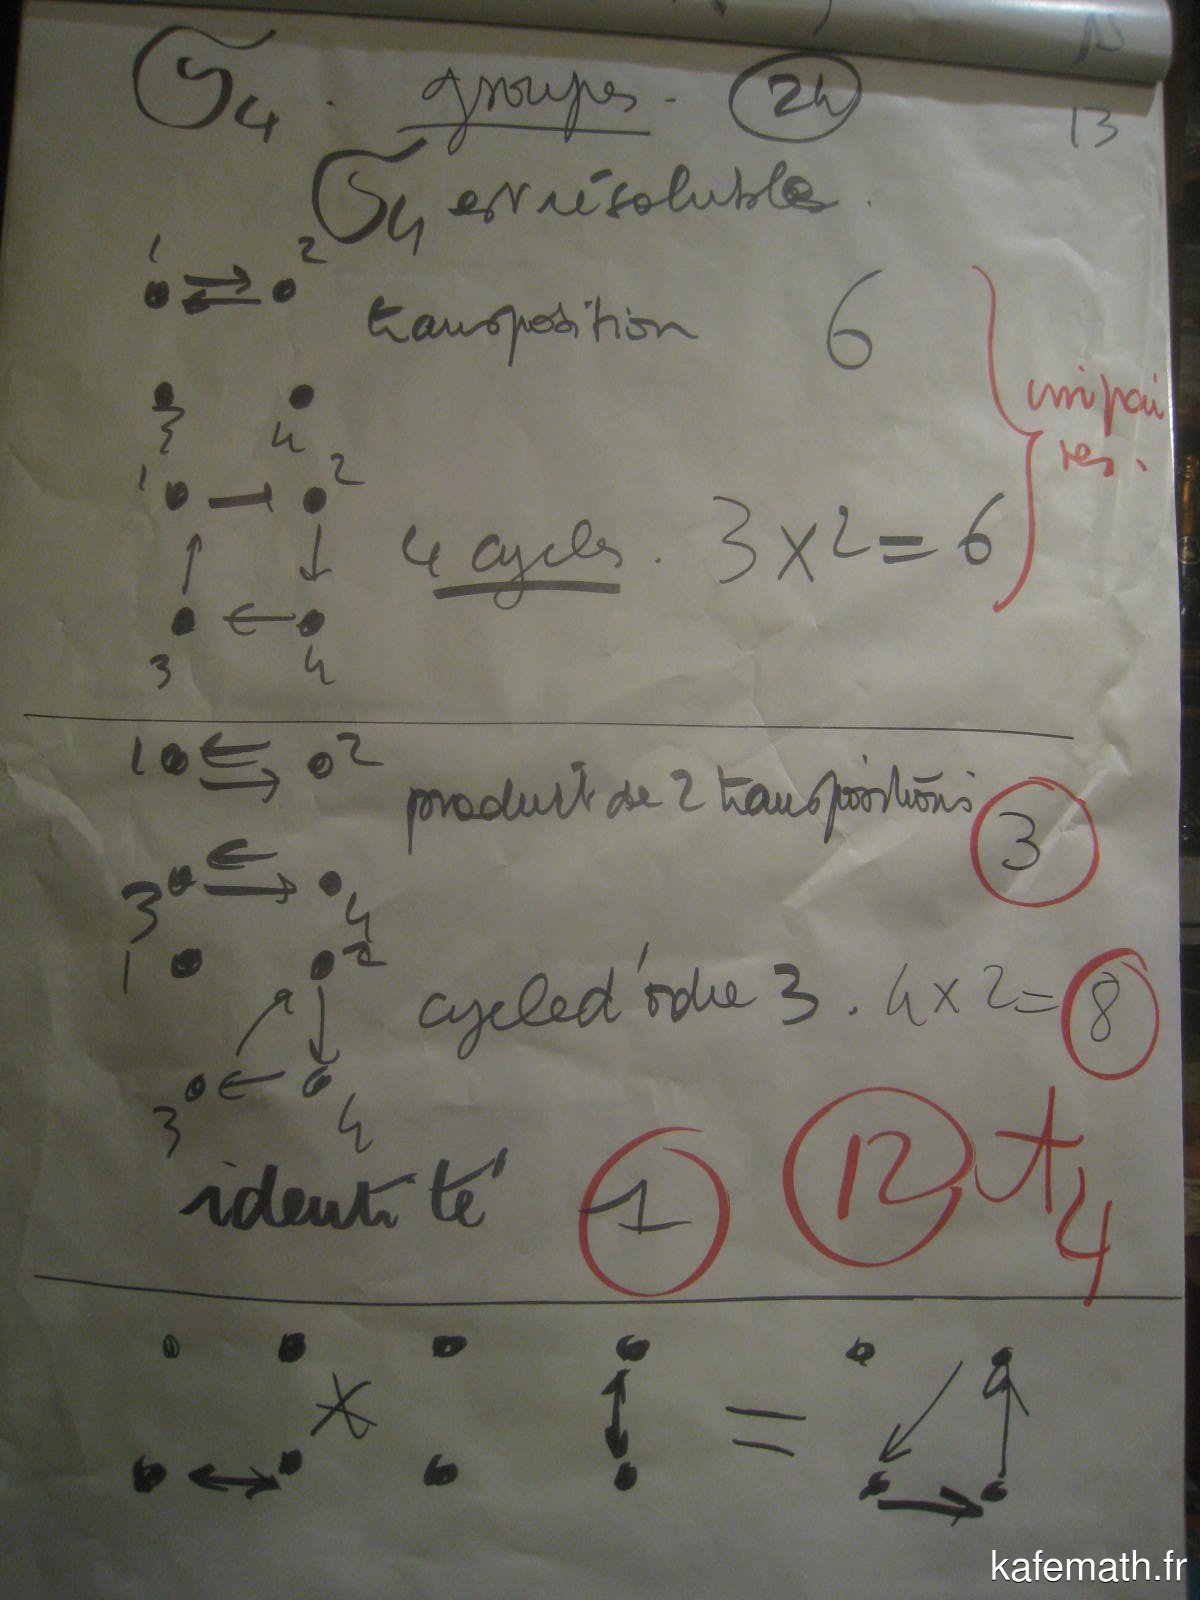 S4. groupes. 24
13
S4 est résoluble.
1 2
transposition 6
3 4
impai
res.
1 2
4 cycles. 3 x 2 = 6
3 4
1 2
produit de 2 transpositions 3
3 4
1 2
cycle d'ordre 3. 4 x 2 = 8
3 4
identité 1 12 A4
x =
kafemath.fr